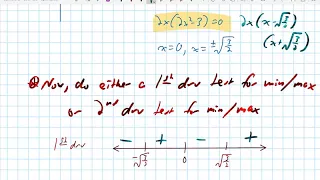 2x(2x²-3)=0 2x(x-√3/2)
x=0, x=±√3/2 (x+√3/2)
Now, do either a 1st drv test for min/max
or 2nd drv test for min/max
1st drv - + - +
-√3/2 0 √3/2